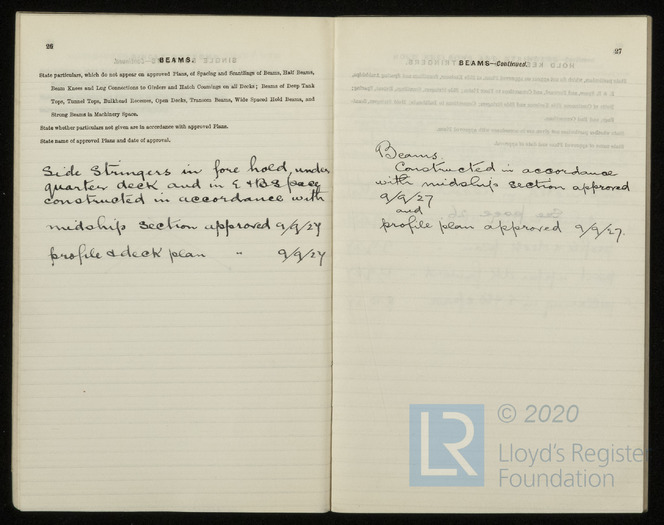 26
BEAMS.
State particulars, which do not appear on approved Plans, of Spacing and Scantlings of Beams, Half Beams,
Beam Knees and Lug Connections to Girders and Hatch Coamings on all Decks; Beams of Deep Tank
Tops, Tunnel Tops, Bulkhead Recesses, Open Decks, Transom Beams, Wide Spaced Hold Beams, and
Strong Beams in Machinery Space.
State whether particulars not given are in accordance with approved Plans.
State name of approved Plans and date of approval.
Side Stringers in fore hold, under
quarter deck and in E & B S pace
constructed in accordance with
midship section approved 9/9/27
profile & deck plan " 9/9/27
27
BEAMS—Continued.
Beams.
Constructed in accordance
with midship section approved
9/9/27
and
profile plan approved 9/9/27.
LR
© 2020
Lloyd's Register
Foundation